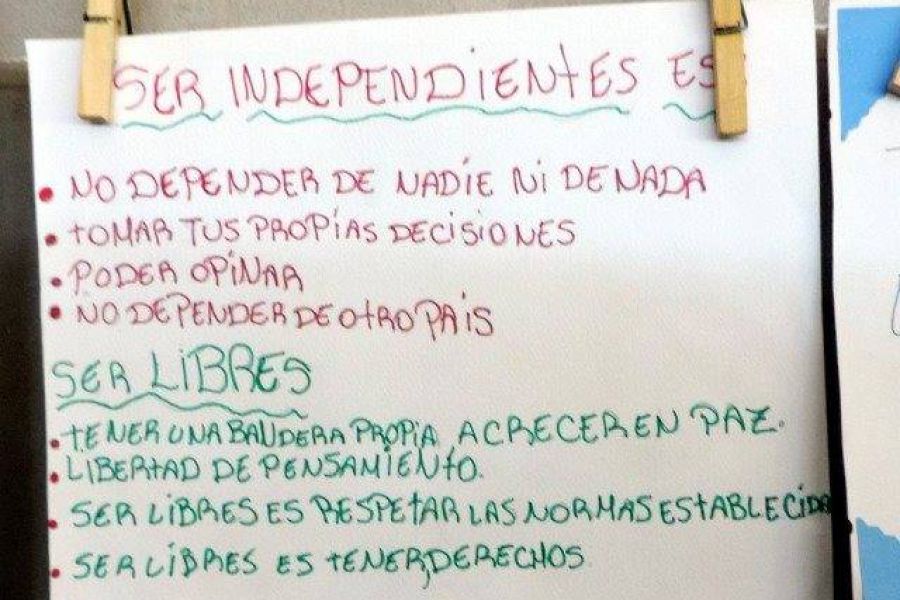 SER INDEPENDIENTES ES
• NO DEPENDER DE NADIE NI DE NADA
• TOMAR TUS PROPIAS DECISIONES
• PODER OPINAR
• NO DEPENDER DE OTRO PAIS
SER LIBRES
• TENER UNA BANDERA PROPIA, A CRECER EN PAZ.
• LIBERTAD DE PENSAMIENTO.
• SER LIBRES ES RESPETAR LAS NORMAS ESTABLECIDA
• SER LIBRES ES TENER, DERECHOS